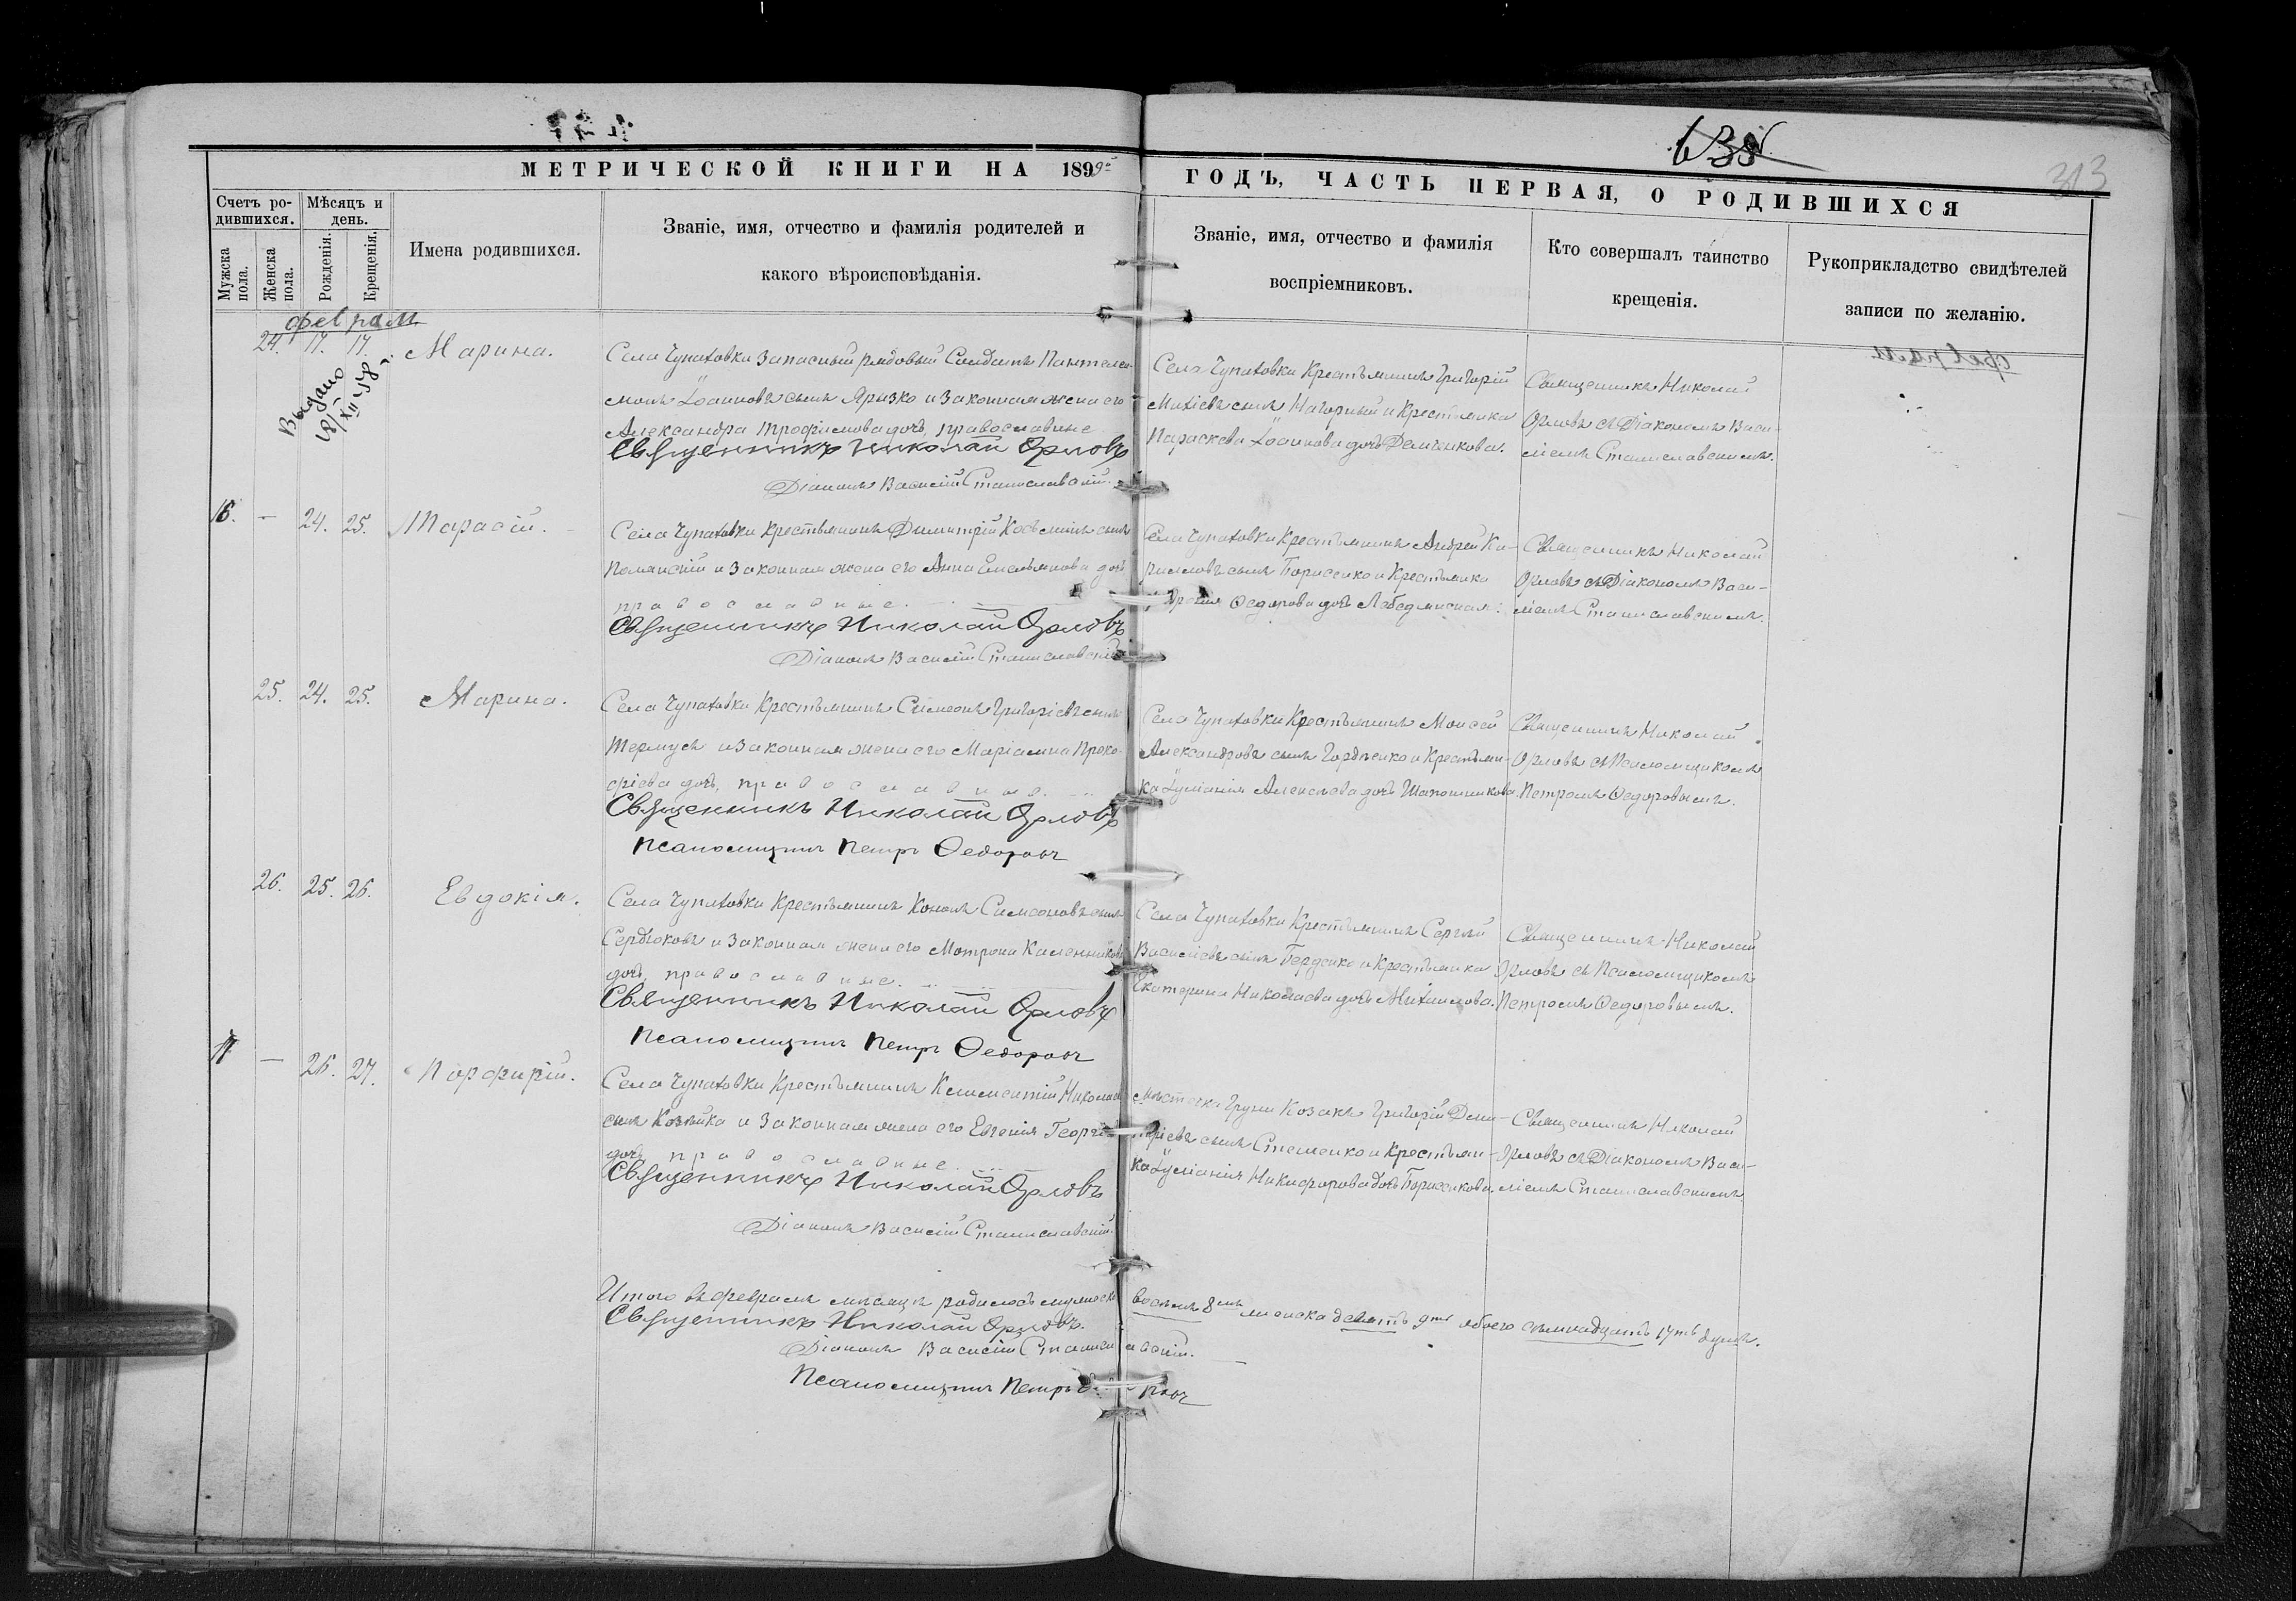 638
313
МЕТРИЧЕСКОЙ КНИГИ НА 1899й
ГОДЪ, ЧАСТЬ ПЕРВАЯ, О РОДИВШИХСЯ
Счетъ ро-
дившихся.
Мужска
пола.
Женска
пола.
Мѣсяцъ и
день.
Рожденія.
Крещенія.
Имена родившихся.
Званіе, имя, отчество и фамилія родителей и
какого вѣроисповѣданія.
Званіе, имя, отчество и фамилія
воспріемниковъ.
Кто совершалъ таинство
крещенія.
Рукоприкладство свидѣтелей
записи по желанію.
февраля
24. 17. 17. Марина.
Выдано
18/XII 58 г.
Села Чупаховки запасный рядовый Солдатъ Пантелеи-
монъ Іоанновъ сынъ Ярызко и законная жена его
Александра Трофимова дочь, православные
Священникъ Николай Орловъ
Діаконъ Василій Станиславскій.
Села Чупаховки Крестьянинъ Григорій
Михіевъ сынъ Нагорный и Крестьянка
Параскева Іоаннова дочь Демченкова.
Священникъ Николай
Орловъ съ Діакономъ Васи-
ліемъ Станиславскимъ.
16. — 24. 25. Тарасій.
Села Чупаховки Крестьянинъ Димитрій Косьминъ сынъ
Полянскій и законная жена его Анна Емельянова дочь
православные.
Священникъ Николай Орловъ
Діаконъ Василій Станиславскій
Села Чупаховки Крестьянинъ Андрей Ки-
рилловъ сынъ Борисенко и Крестьянка
Ѳедорова дочь Лебединская.
Священникъ Николай
Орловъ съ Діакономъ Васи-
ліемъ Станиславскимъ.
25. 24. 25. Марина.
Села Чупаховки Крестьянинъ Симеонъ Григоріевъ сынъ
и законная жена его Маріамна Проко-
фіева дочь, православные.
Священникъ Николай Орловъ
Псаломщикъ Петръ Ѳедоровъ
Села Чупаховки Крестьянинъ Моисей
Александровъ сынъ Гордіенко и Крестьян-
ка Іуліанія Алексѣева дочь Шапошникова.
Священникъ Николай
Орловъ съ Псаломщикомъ
Петромъ Ѳедоровымъ.
26. 25. 26. Евдокія.
Села Чупаховки Крестьянинъ Кононъ Симеоновъ сынъ
Сердюковъ и законная жена его Мотрона Каленникова
дочь, православные.
Священникъ Николай Орловъ
Псаломщикъ Петръ Ѳедоровъ
Села Чупаховки Крестьянинъ Сергѣй
Василіевъ сынъ Берденко и Крестьянка
Екатерина Николаева дочь Михаилова.
Священникъ Николай
Орловъ съ Псаломщикомъ
Петромъ Ѳедоровымъ.
17 — 26. 27. Порфирій.
Села Чупаховки Крестьянинъ Климентій Николаевъ
сынъ и законная жена его Евгенія Георгіева
дочь, православные.
Священникъ Николай Орловъ
Діаконъ Василій Станиславскій.
Мѣстечка Груни Козакъ Григорій Дими-
тріевъ сынъ Стеценко и Крестьян-
ка Іуліанія Никифорова дочь Борисенкова.
Священникъ Николай
Орловъ съ Діакономъ Васи-
ліемъ Станиславскимъ
Итого въ февралѣ мѣсяцѣ родилось мужеска восемь 8мь женска девять 9ть обоего семнадцать 17ть душъ.
Священникъ Николай Орловъ.
Діаконъ Василій Станиславскій.
Псаломщикъ Петръ Ѳедоровъ